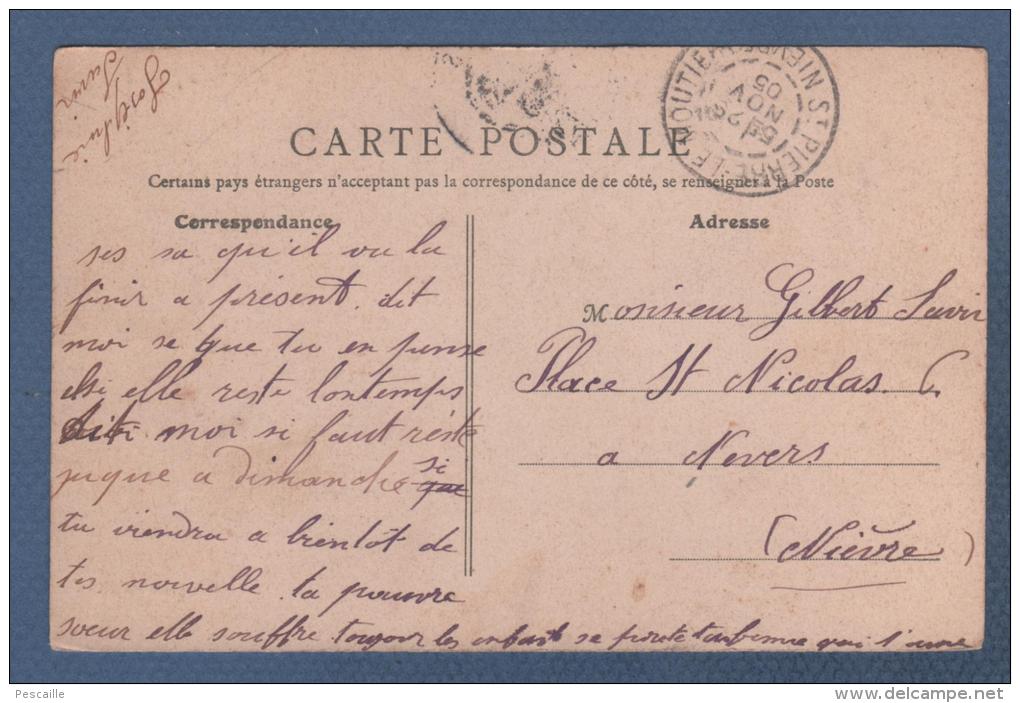 CARTE POSTALE
Certains pays étrangers n'acceptant pas la correspondance de ce côté, se renseigner à la Poste
Correspondance
Adresse
ses sa qu'il vu la
finir a présent. dit
moi se que tu en panse
elle reste lontemps
dit moi si faut reste
juque a dimanche si que
tu viendra a bientôt de
tes nouvelle. ta pauvre
soeur elle souffre toujour les enfant se porte qui t'aime
Monsieur Gilbert Savin
Place St Nicolas. 6.
a Nevers
(Nièvre)
ST PIERRE-LE-MOUTIER NIEVRE
NOV
05
Savin
Pescaille
www.delcampe.net